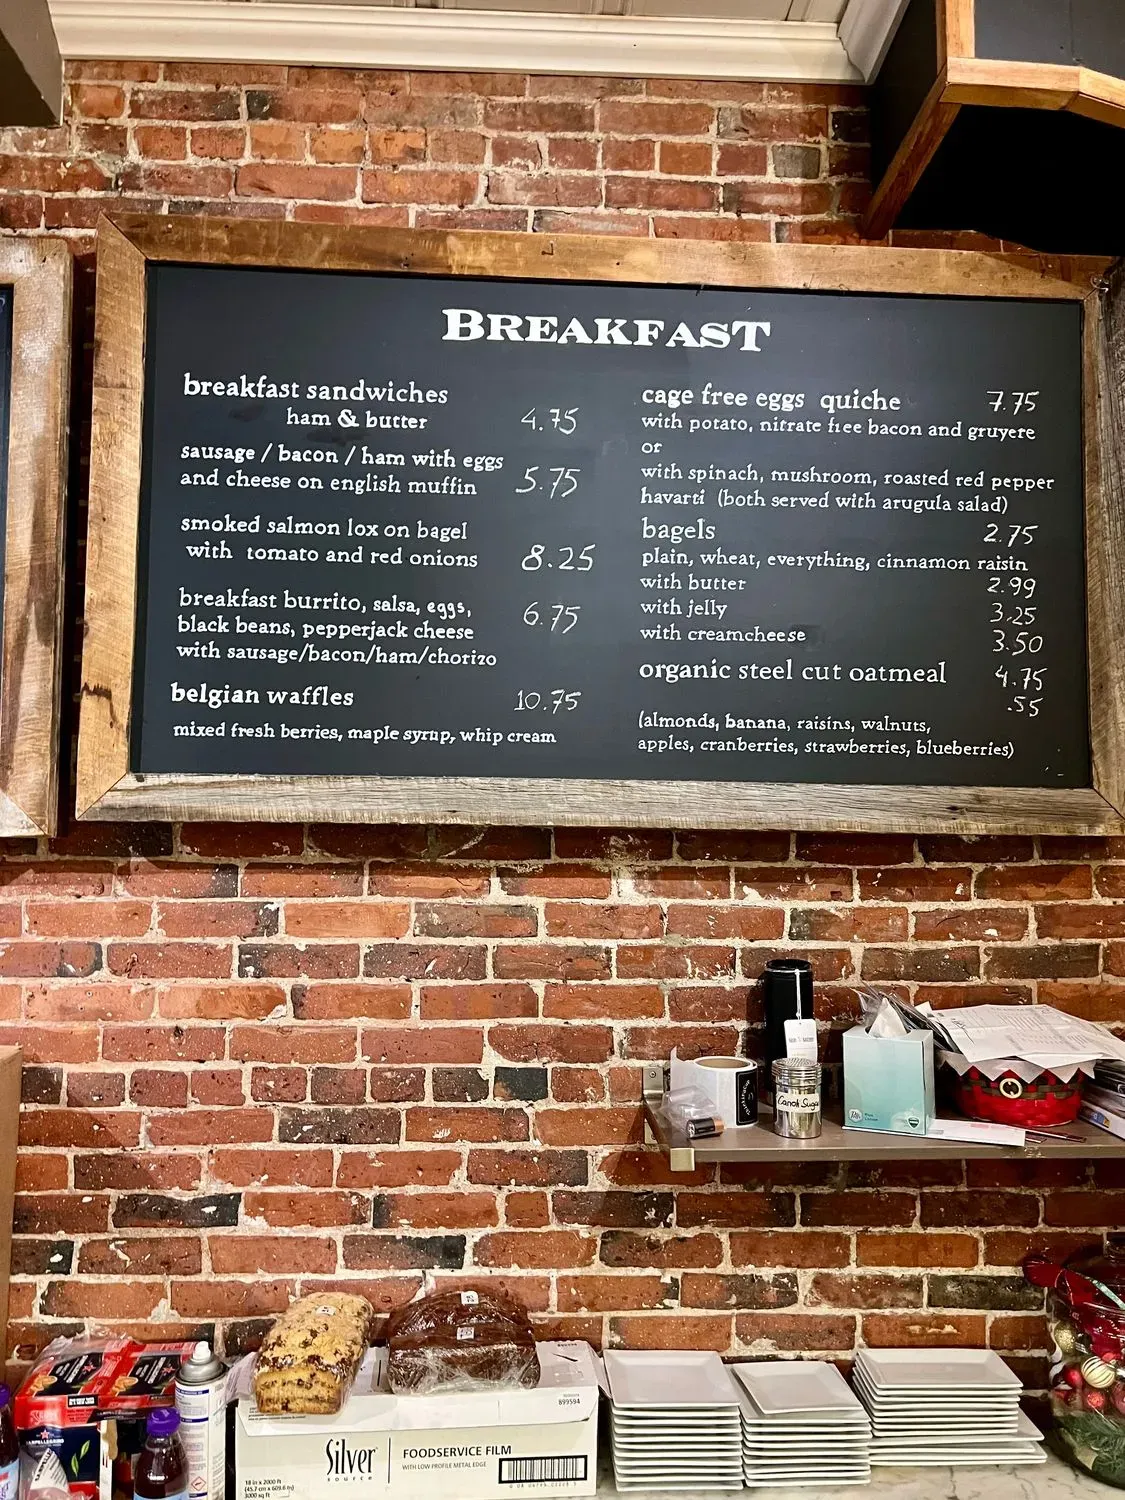 BREAKFAST
breakfast sandwiches
ham & butter 4.75
sausage / bacon / ham with eggs
and cheese on english muffin 5.75
smoked salmon lox on bagel
with tomato and red onions 8.25
breakfast burrito, salsa, eggs,
black beans, pepperjack cheese 6.75
with sausage/bacon/ham/chorizo
belgian waffles 10.75
mixed fresh berries, maple syrup, whip cream
cage free eggs quiche 7.75
with potato, nitrate free bacon and gruyere
or
with spinach, mushroom, roasted red pepper
havarti (both served with arugula salad)
bagels 2.75
plain, wheat, everything, cinnamon raisin
with butter 2.99
with jelly 3.25
with creamcheese 3.50
organic steel cut oatmeal 4.75
.55
(almonds, banana, raisins, walnuts,
apples, cranberries, strawberries, blueberries)
Silver
source
FOODSERVICE FILM
WITH LOW PROFILE METAL EDGE
18 in x 2000 ft
(45.7 cm x 609.6 m)
3000 sq ft
899594